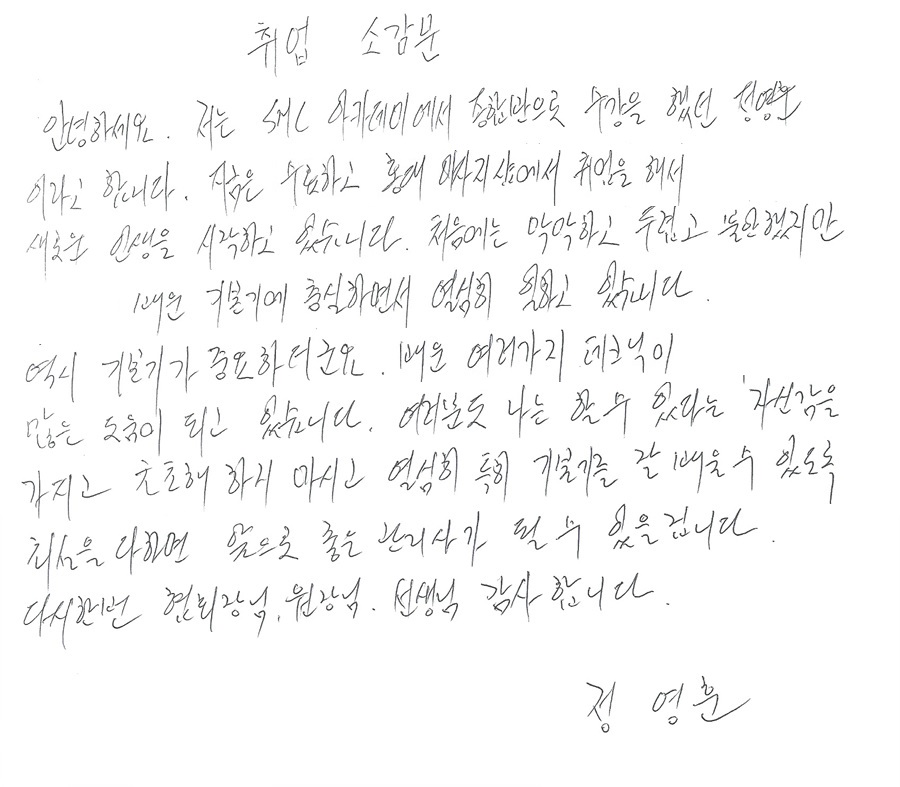 취업 소감문
안녕하세요. 저는 SMC 아카데미에서 종합반으로 수강을 했던 정영훈
이라고 합니다. 지금은 수료하고 황대 마사지샵에서 취업을 해서
새로운 인생을 시작하고 있습니다. 처음에는 막막하고 두렵고 불안했지만
배운 기본기에 충실하면서 열심히 일하고 있습니다.
역시 기본기가 중요하더군요. 배운 여러가지 테크닉이
많은 도움이 되고 있습니다. 여러분도 나는 할 수 있다는 자신감을
가지고 초조해 하지 마시고 열심히 특히 기본기를 잘 배울 수 있도록
최선을 다하면 앞으로 좋은 관리사가 될 수 있을겁니다.
다시한번 현회장님, 원장님. 선생님 감사합니다.
정 영훈